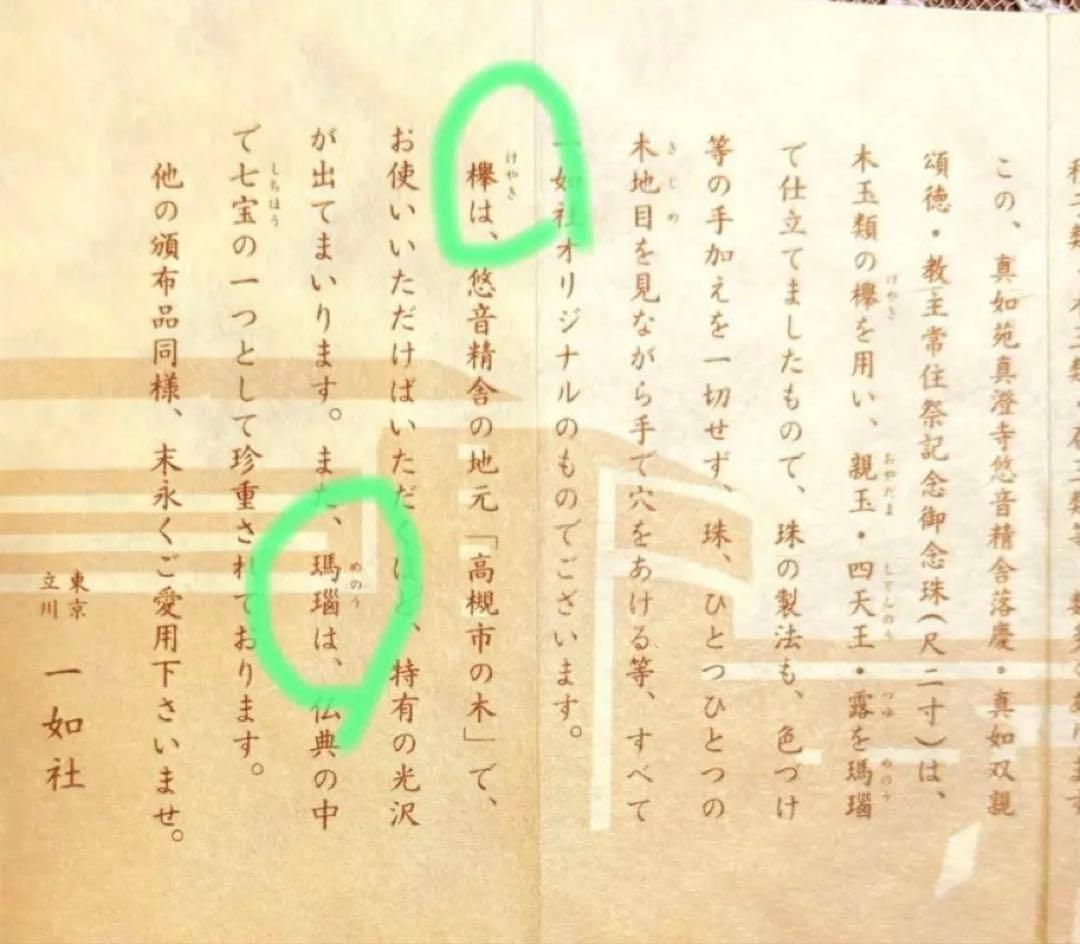 この、真如苑真澄寺悠音精舎落慶・真如双親
頌徳・教主常住祭記念御念珠(尺二寸)は、
木玉類の欅を用い、親玉・四天王・露を瑪瑙
けやき
おやだま
してんのう
つゆ
めのう
で仕立てましたもので、珠の製法も、色づけ
等の手加えを一切せず、珠、ひとつひとつの
木地目を見ながら手で穴をあける等、すべて
きじめ
一如社オリジナルのものでございます。
欅は、悠音精舎の地元「高槻市の木」で、
けやき
お使いいただけばいただくほど、特有の光沢
が出てまいります。また、瑪瑙は、仏典の中
めのう
で七宝の一つとして珍重されております。
しちほう
他の頒布品同様、末永くご愛用下さいませ。
東京
立川
一如社